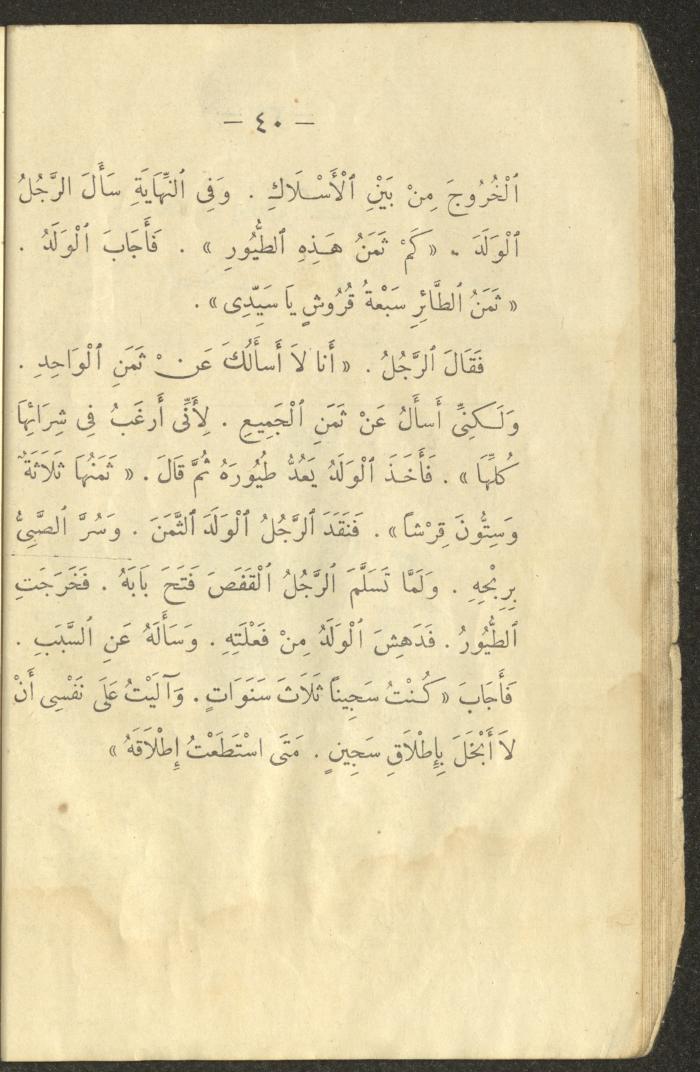 — ٤٠ —
ٱلْخُرُوجَ مِنْ بَيْنِ ٱلْأَسْلَاكِ . وَفِى ٱلنِّهَايَةِ سَأَلَ ٱلرَّجُلُ
ٱلْوَلَدَ . «كَمْ ثَمَنُ هَذِهِ ٱلطُّيُورِ» . فَأَجَابَ ٱلْوَلَدُ .
«ثَمَنُ ٱلطَّائِرِ سَبْعَةُ قُرُوشٍ يَا سَيِّدِى» .
فَقَالَ ٱلرَّجُلُ . «أَنا لاَ أَسأَلُكَ عَنْ ثَمَنِ ٱلْوَاحِدِ .
وَلَكِنِّى أَسأَلُ عَنْ ثَمَنِ ٱلْجَمِيعِ . لِأَنِّى أَرغَبُ فِى شِرَائِهَا
كُلِّهَا» . فَأَخَذَ ٱلْوَلَدُ يَعُدُّ طُيُورَهُ ثُمَّ قَالَ . «ثَمَنُهَا ثَلَاثَةٌ
وَسِتُّونَ قِرْشاً» . فَنَقَدَ ٱلرَّجُلُ ٱلْوَلَدَ ٱلثَّمَنَ . وَسُرَّ ٱلصَّبِىُّ
بِرِبْحِهِ . وَلَمَّا تَسَلَّمَ ٱلرَّجُلُ ٱلْقَفَصَ فَتَحَ بَابَهُ . فَخَرَجَتِ
ٱلطُّيُورُ . فَدَهِشَ ٱلْوَلَدُ مِنْ فَعْلَتِهِ . وَسَأَلَهُ عَنِ ٱلسَّبَبِ .
فَأَجَابَ «كُنْتُ سَجِيناً ثَلَاثَ سَنَوَاتٍ . وَآلَيْتُ عَلَى نَفْسِى أَنْ
لاَ أَبْخَلَ بِإِطْلَاقِ سَجِينٍ . مَتَى اسْتَطَعْتُ إِطْلَاقَهُ»